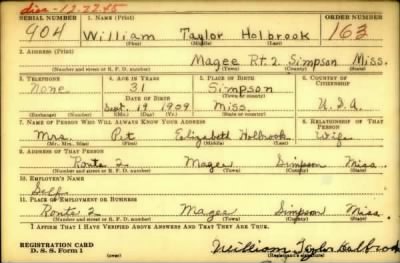 disc-12-22-45
SERIAL NUMBER 1. NAME (Print) ORDER NUMBER
904 William Taylor Holbrook 163
(First) (Middle) (Last)
2. ADDRESS (Print)
Magee Rt. 2 Simpson Miss.
(Number and street or R. F. D. number) (Town) (County) (State)
3. TELEPHONE 4. AGE IN YEARS 5. PLACE OF BIRTH 6. COUNTRY OF CITIZENSHIP
None 31 Simpson
DATE OF BIRTH (Town or county)
Sept. 19 1909 Miss. U.S.A.
(Exchange) (Number) (Mo.) (Day) (Yr.) (State or country)
7. NAME OF PERSON WHO WILL ALWAYS KNOW YOUR ADDRESS 8. RELATIONSHIP OF THAT PERSON
Mrs. Pet Elizabeth Holbrook Wife
(Mr., Mrs., Miss) (First) (Middle) (Last)
9. ADDRESS OF THAT PERSON
Route 2 Magee Simpson Miss.
(Number and street or R. F. D. number) (Town) (County) (State)
10. EMPLOYER'S NAME
Self
11. PLACE OF EMPLOYMENT OR BUSINESS
Route 2 Magee Simpson Miss.
(Number and street or R. F. D. number) (Town) (County) (State)
I AFFIRM THAT I HAVE VERIFIED ABOVE ANSWERS AND THAT THEY ARE TRUE.
REGISTRATION CARD
D. S. S. Form 1 William Taylor Holbrook
(over) (Registrant's signature)